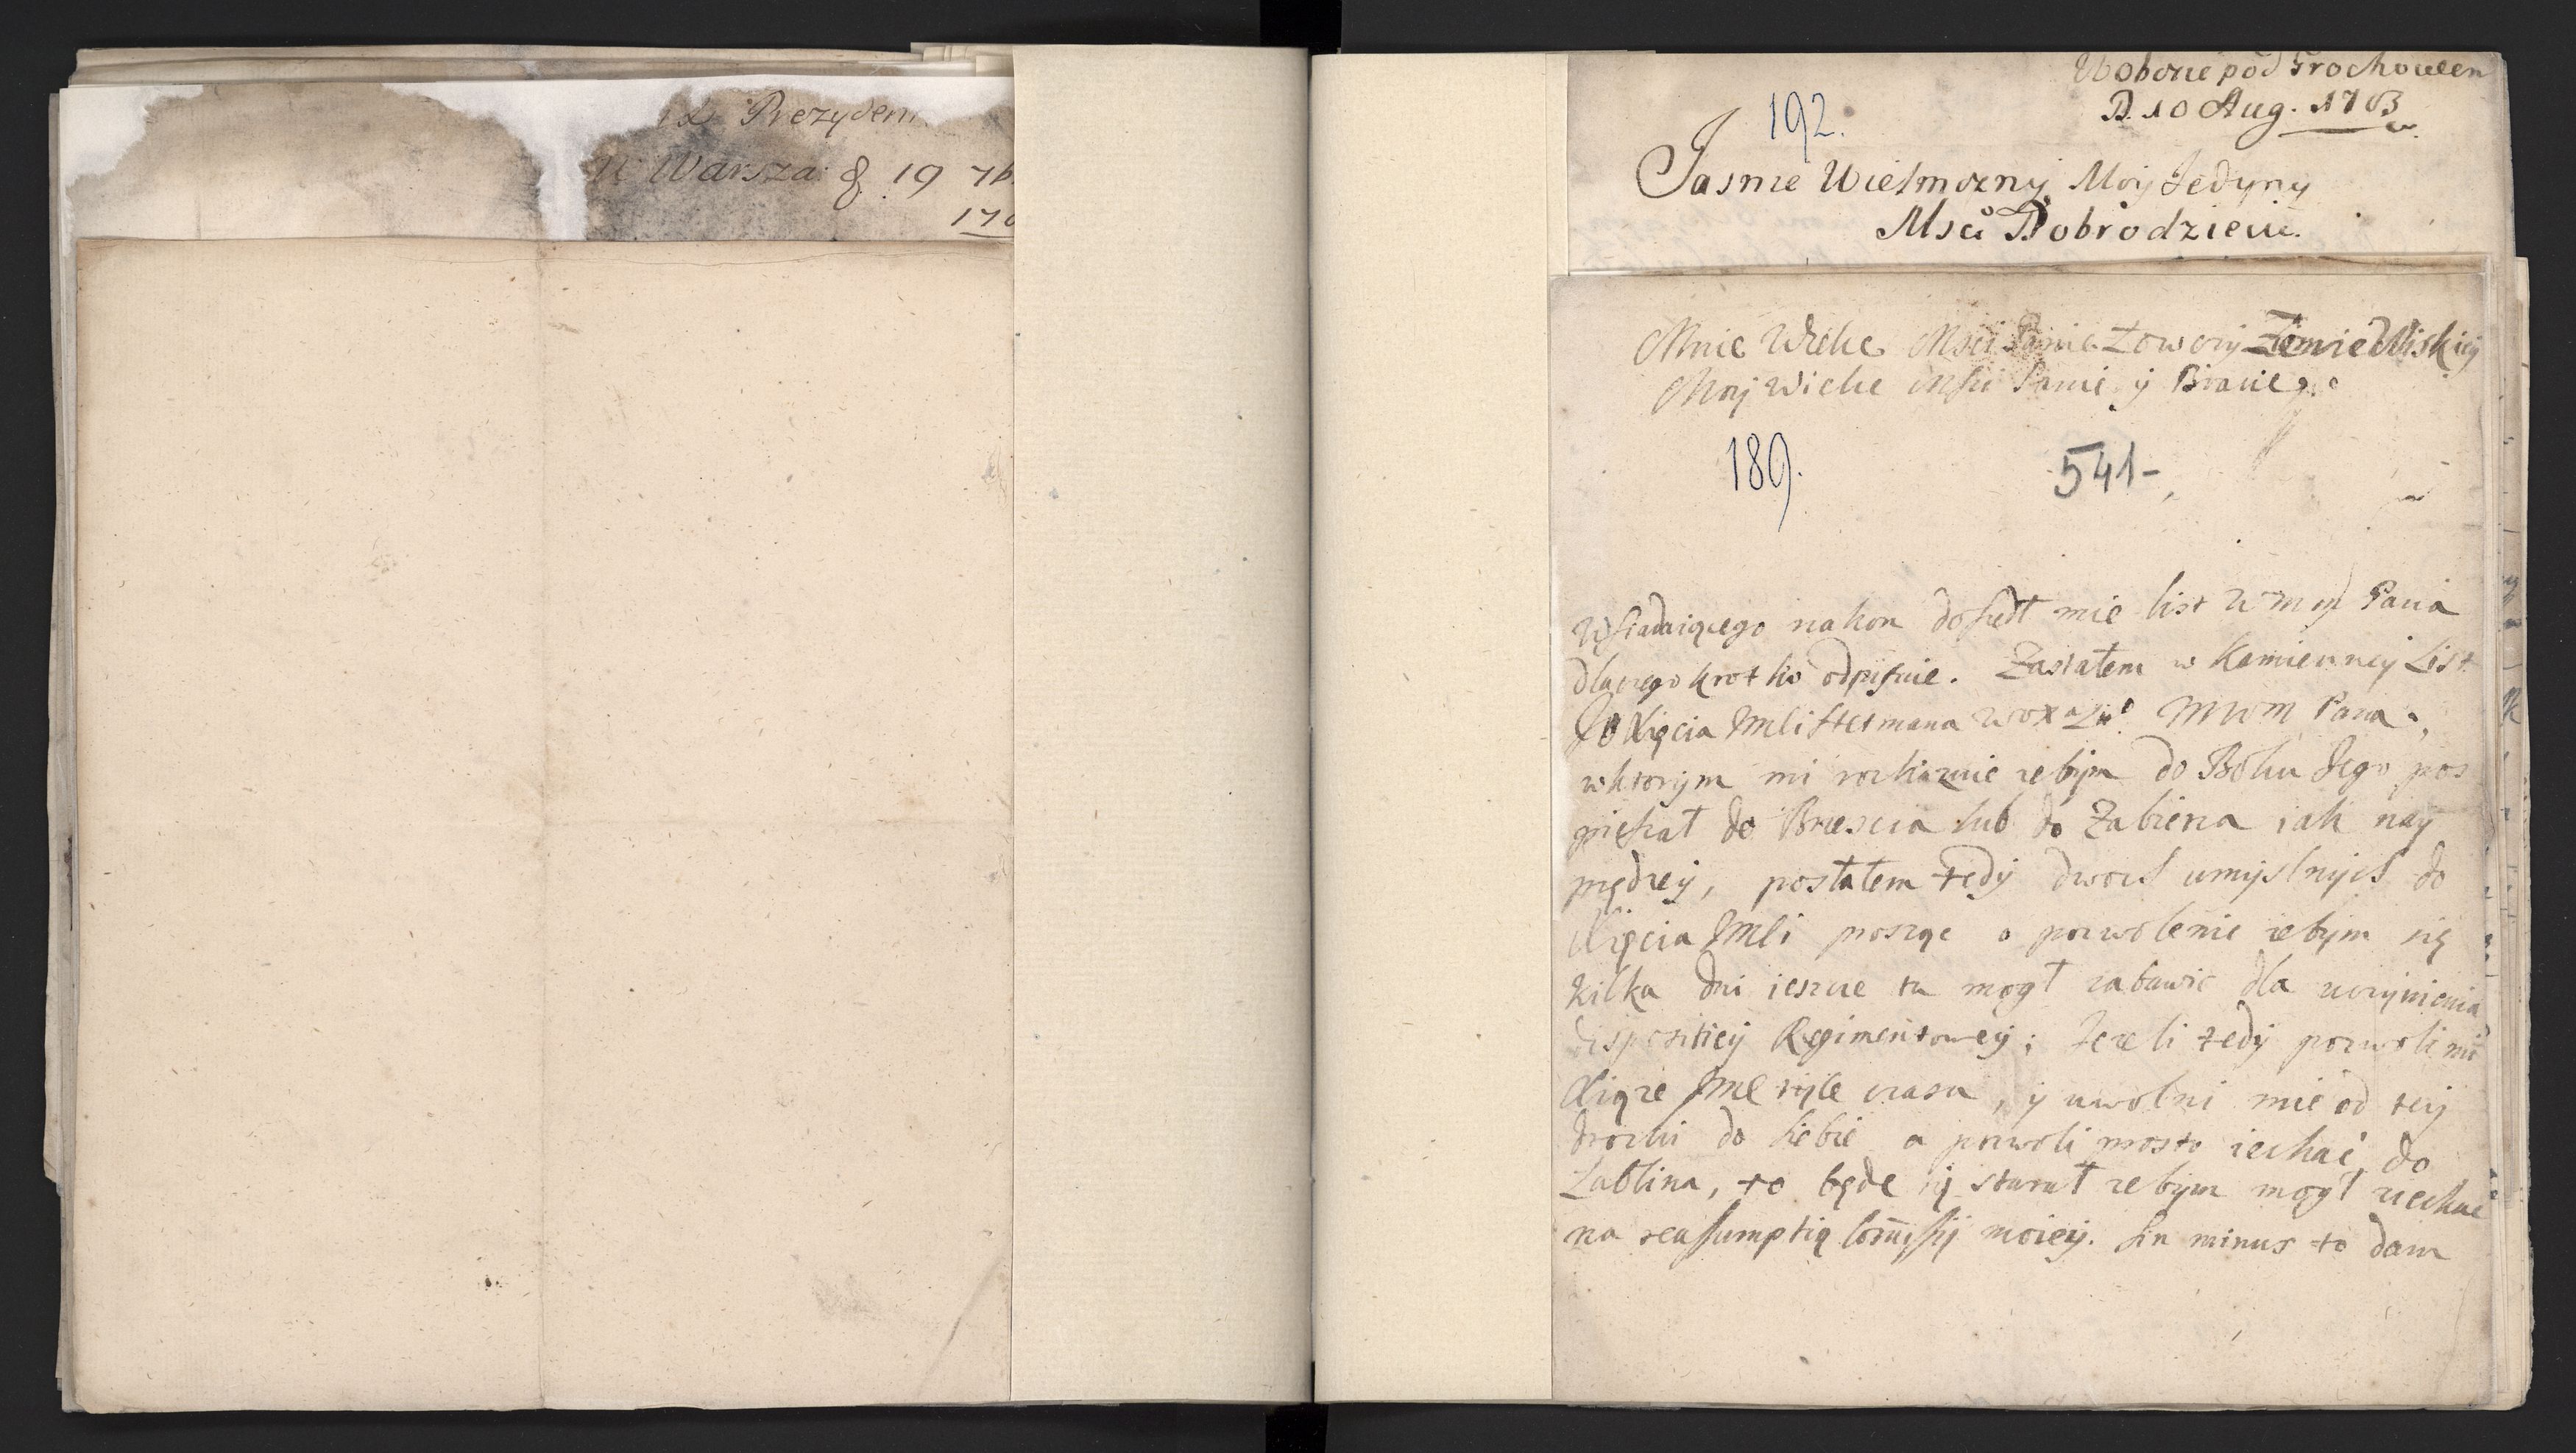 Prezyden
Warsza: 19 7b
170
W obozie pod Grochowem
D. 10 Aug. 1703
192.
Jasnie Wielmozny Moy Jedyny
Msci Dobrodzieiu.
Mnie Wielce Msci Panie Łowczy Ziemie
Moy Wielce Msci Panie y Bracie
189.
541-
Wsiadaiącego na kon doszedł mie list Wm m Pana
dlaczego krotko odpisuie. Zastałem w Kamienney List
Xięcia Jmci Hetmana Mwm Pana
w ktorym mi rozkazuie zebym do Boku Jego pos
pieszał do Brzescia lub do Zabienia iak nay
prędzey, posłałem tedy dwoch umyslnych do
Xięcia Jmci prosząc o pozwolenie zebym się
kilka dni ieszcze tu mogł zabawic dla uczynienia
dispositiey Regimentowey; Jezeli tedy pozwoli mi
Xiąze Jmc tyle czasu, y uwolni mie od tey
drozki do siebie a pozwoli prosto iechac do
Lublina, to będe się starał zebym mogł ziechac
na reassumptią Comissij moiey. Sin minus to dam